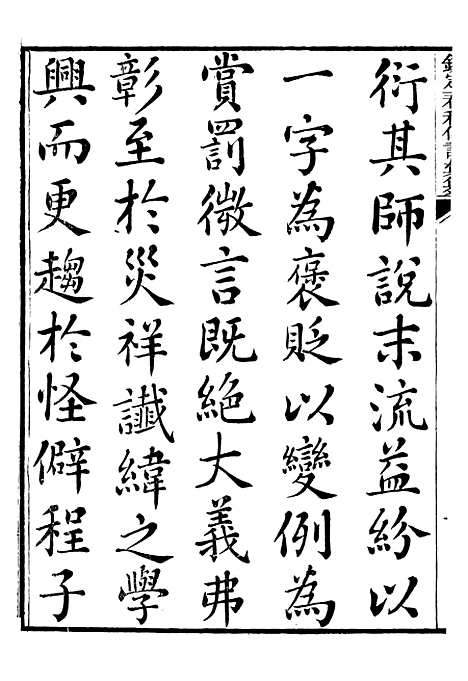 衍其師說末流益紛以
一字為褒貶以變例為
賞罰微言既絶大義弗
彰至於災祥讖緯之學
興而更趨於怪僻程子